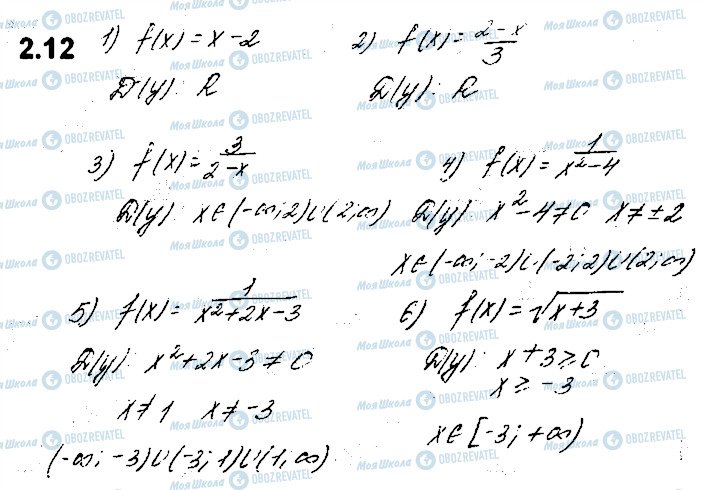 2.12 1) f(x) = x - 2
D(y): R
2) f(x) = (2 - x)/3
D(y): R
3) f(x) = 3/(2 - x)
D(y): x ∈ (-∞; 2) ∪ (2; ∞)
4) f(x) = 1/(x² - 4)
D(y): x² - 4 ≠ 0 x ≠ ± 2
x ∈ (-∞; -2) ∪ (-2; 2) ∪ (2; ∞)
5) f(x) = 1/(x² + 2x - 3)
D(y): x² + 2x - 3 ≠ 0
x ≠ 1 x ≠ -3
(-∞; -3) ∪ (-3; 1) ∪ (1; ∞)
6) f(x) = √(x + 3)
D(y): x + 3 ≥ 0
x ≥ -3
x ∈ [-3; +∞)
Моя Школа OBOZREVATEL